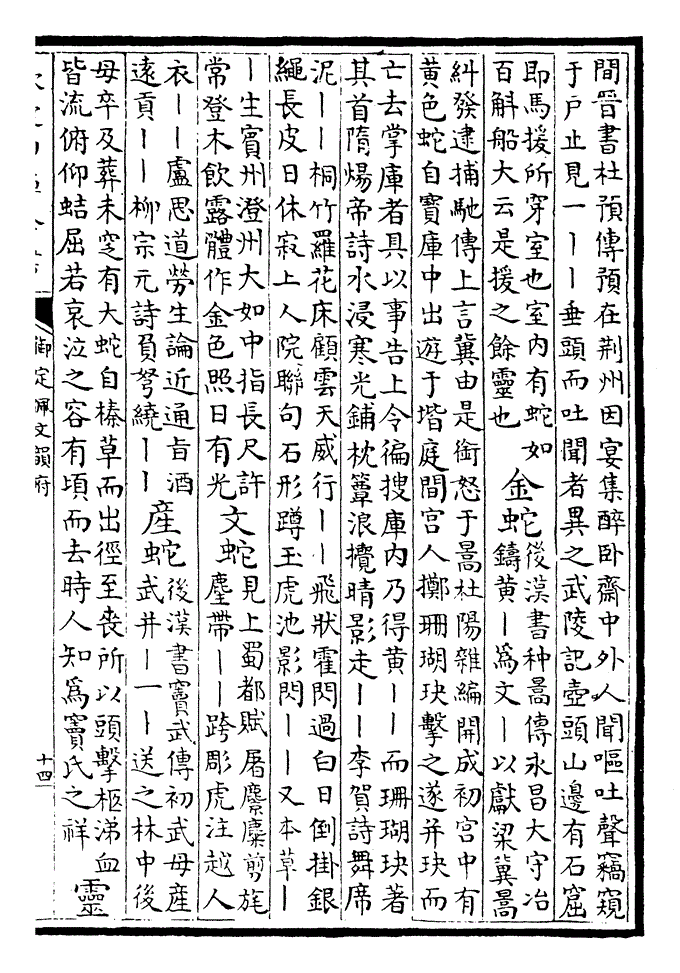 間晉書杜預傳預在荆州因宴集醉卧齋中外人聞嘔吐聲竊窺
于户止見一丨丨垂頭而吐聞者異之武陵記壺頭山邊有石窟
即馬援所穿室也室内有蛇如
百斛船大云是援之餘靈也
金蛇
後漢書种暠傳永昌大守冶
鑄黄丨爲文丨以獻梁冀暠
糾發逮捕馳傳上言冀由是銜怒于暠杜陽雜編開成初宫中有
黄色蛇自寶庫中出遊于堦庭間宫人擲珊瑚玦擊之遂并玦而
亡去掌庫者具以事告上令徧搜庫内乃得黄丨丨而珊瑚玦著
其首隋煬帝詩水浸寒光鋪枕簟浪攪晴影走丨丨李賀詩舞席
泥丨丨桐竹羅花床顧雲天威行丨丨飛狀霍閃過白日倒掛銀
繩長皮日休寂上人院聯句石形蹲玉虎池影閃丨丨又本草丨
丨生賓州澄州大如中指長尺許
常登木飲露體作金色照日有光
文蛇
見上蜀都賦屠麖麋剪旄
麈帶丨丨跨彫虎注越人
衣丨丨盧思道勞生論近通旨酒
遠貢丨丨柳宗元詩負弩繞丨丨
産蛇
後漢書竇武傳初武母産
武并丨一丨送之林中後
母卒及葬未窆有大蛇自榛草而出徑至喪所以頭擊柩涕血
皆流俯仰蛣屈若哀泣之容有頃而去時人知爲竇氏之祥
靈
御定佩文韻府
十四